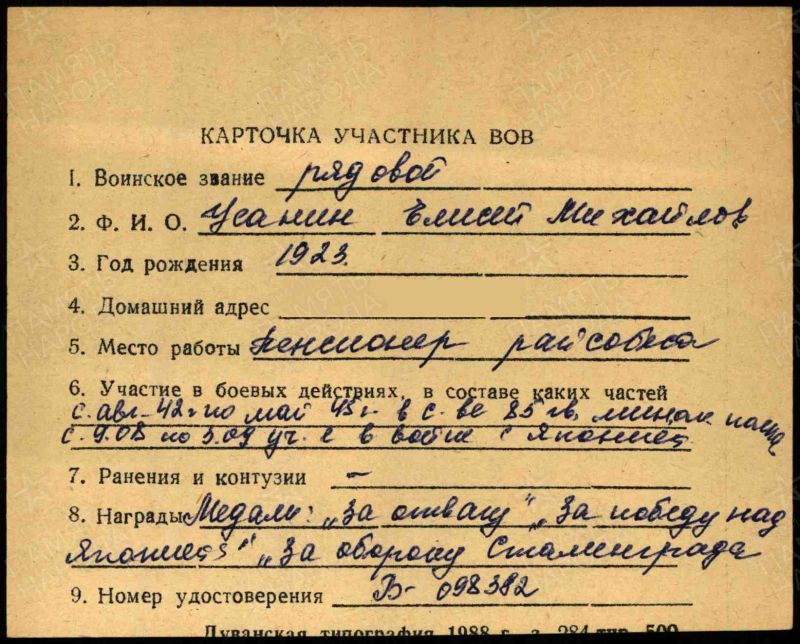 КАРТОЧКА УЧАСТНИКА ВОВ
1. Воинское звание рядовой
2. Ф. И. О. Усанин Елисей Михайлов
3. Год рождения 1923.
4. Домашний адрес
5. Место работы пенсионер райсобеса
6. Участие в боевых действиях, в составе каких частей
с авг-42г по май 45г. в с-ве 85 гв. мином. полка
с 9.08 по 3.09 уч. е в войне с Японией
7. Ранения и контузии –
8. Награды Медали: „За отвагу" „За победу над
Японией" „За оборону Сталинграда
9. Номер удостоверения В- 098382
Дуванская типография 1988 г. з. 284 тир. 500
ПАМЯТЬ НАРОДА